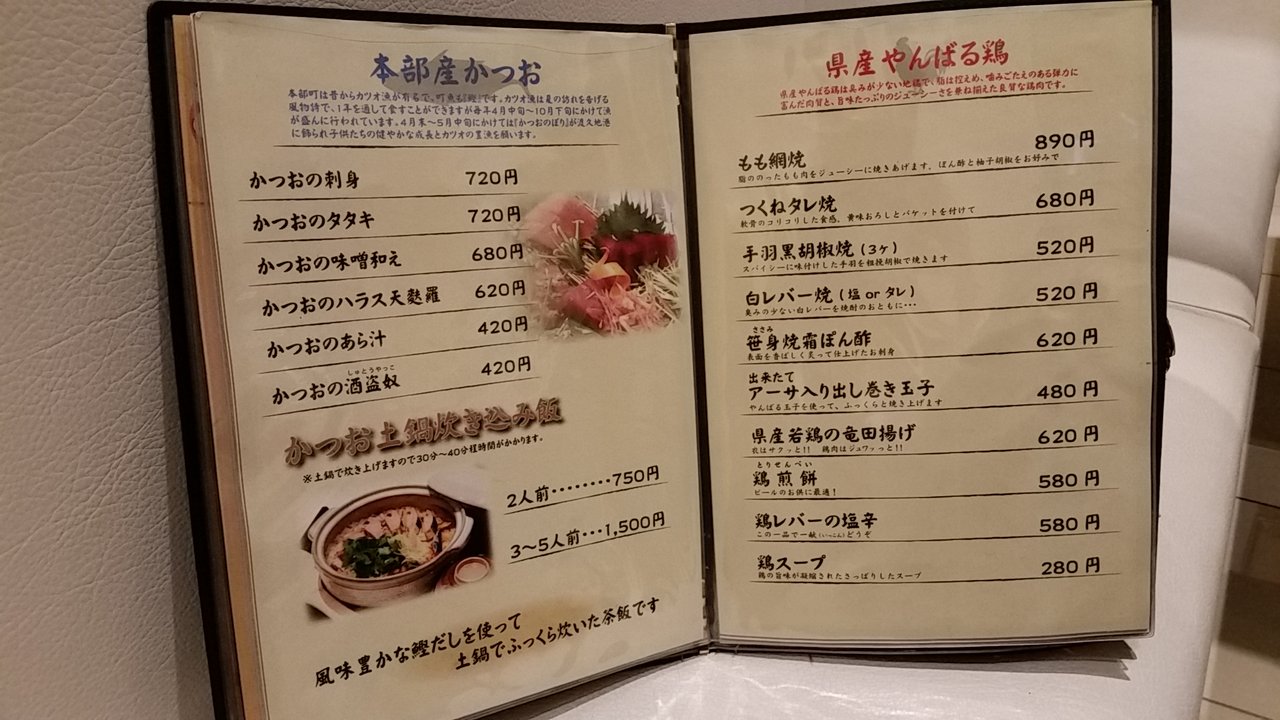 本部産かつお
本部町は昔からカツオ漁が有るで、町魚も『鰹』です。カツオ漁は夏の訪れを告げる
風物詩で、1年を通して食すことができますが毎年4月中旬〜10月下旬にかけて漁
が盛んに行われています。4月末〜5月中旬にかけては『かつおのぼり』が渡久地港
に飾られ子供たちの健やかな成長とカツオの豊漁を願います。
かつおの刺身 720円
かつおのタタキ 720円
かつおの味噌和え 680円
かつおのハラス天麩羅 620円
かつおのあら汁 420円
しゅとうやっこ
かつおの酒盗奴 420円
かつお土鍋炊き込み飯
※土鍋で炊き上げますので30分〜40分程時間がかかります。
2人前・・・・・・・・750円
3〜5人前・・・1,500円
風味豊かな鰹だしを使って
土鍋でふっくら炊いた茶飯です
県産やんばる鶏
県産やんばる鶏は臭みが少ない地鶏で、脂は控えめ、噛みごたえのある弾力に
富んだ肉質と、旨味たっぷりのジューシーさを兼ね揃えた良質な鶏肉です。
もも網焼 890円
脂ののったもも肉をジューシーに焼きあげます。ぽん酢と柚子胡椒をお好みで
つくねタレ焼 680円
軟骨のコリコリした食感。黄味おろしとバケットを付けて
手羽黒胡椒焼(3ヶ) 520円
スパイシーに味付けした手羽を粗挽胡椒で焼きます
白レバー焼(塩 or タレ) 520円
臭みの少ない白レバーを焼酎のおともに・・・
ささみ
笹身焼霜ぽん酢 620円
表面を香ばしく炙って仕上げたお刺身
出来たて
アーサ入り出し巻き玉子 480円
やんばる玉子を使って、ふっくらと焼き上げます
県産若鶏の竜田揚げ 620円
衣はサクッと!! 鶏肉はジュワァっと!!
とりせんべい
鶏煎餅 580円
ビールのお供に最適!
鶏レバーの塩辛 580円
この一品で一献(いっこん)どうぞ
鶏スープ 280円
鶏の旨味が凝縮されたさっぱりしたスープ